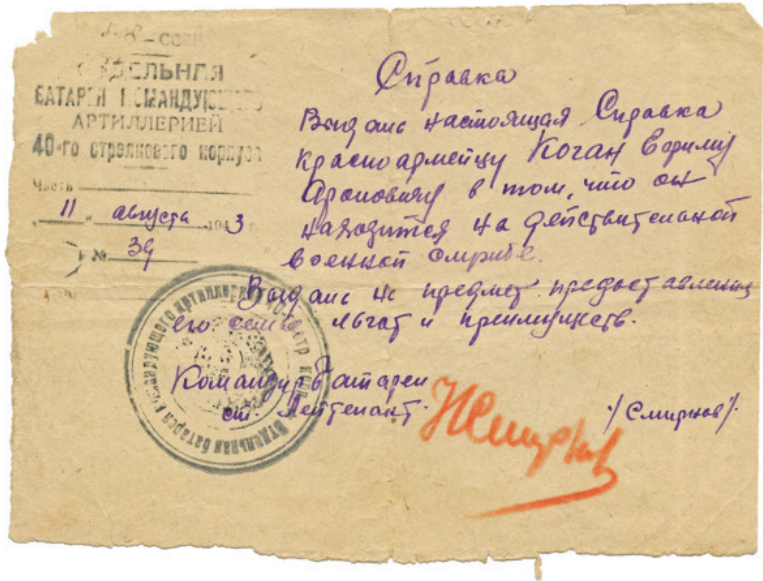 ОТДЕЛЬНАЯ
БАТАРЕЯ КОМАНДУЮЩЕГО
АРТИЛЛЕРИЕЙ
40-го стрелкового корпуса
Часть
„ 11 " августа 1943 г.
№ 39
Справка
Выдана настоящая Справка
красноармейцу Коган Ефиму
Ароновичу в том, что он
находится на действительной
военной службе.
Выдана на предмет предоставления
его семье льгот и преимуществ.
Командир батареи
ст. Лейтенант.
/Смирнов/.
Отдельная батарея командующего артиллерией 40 стр корп